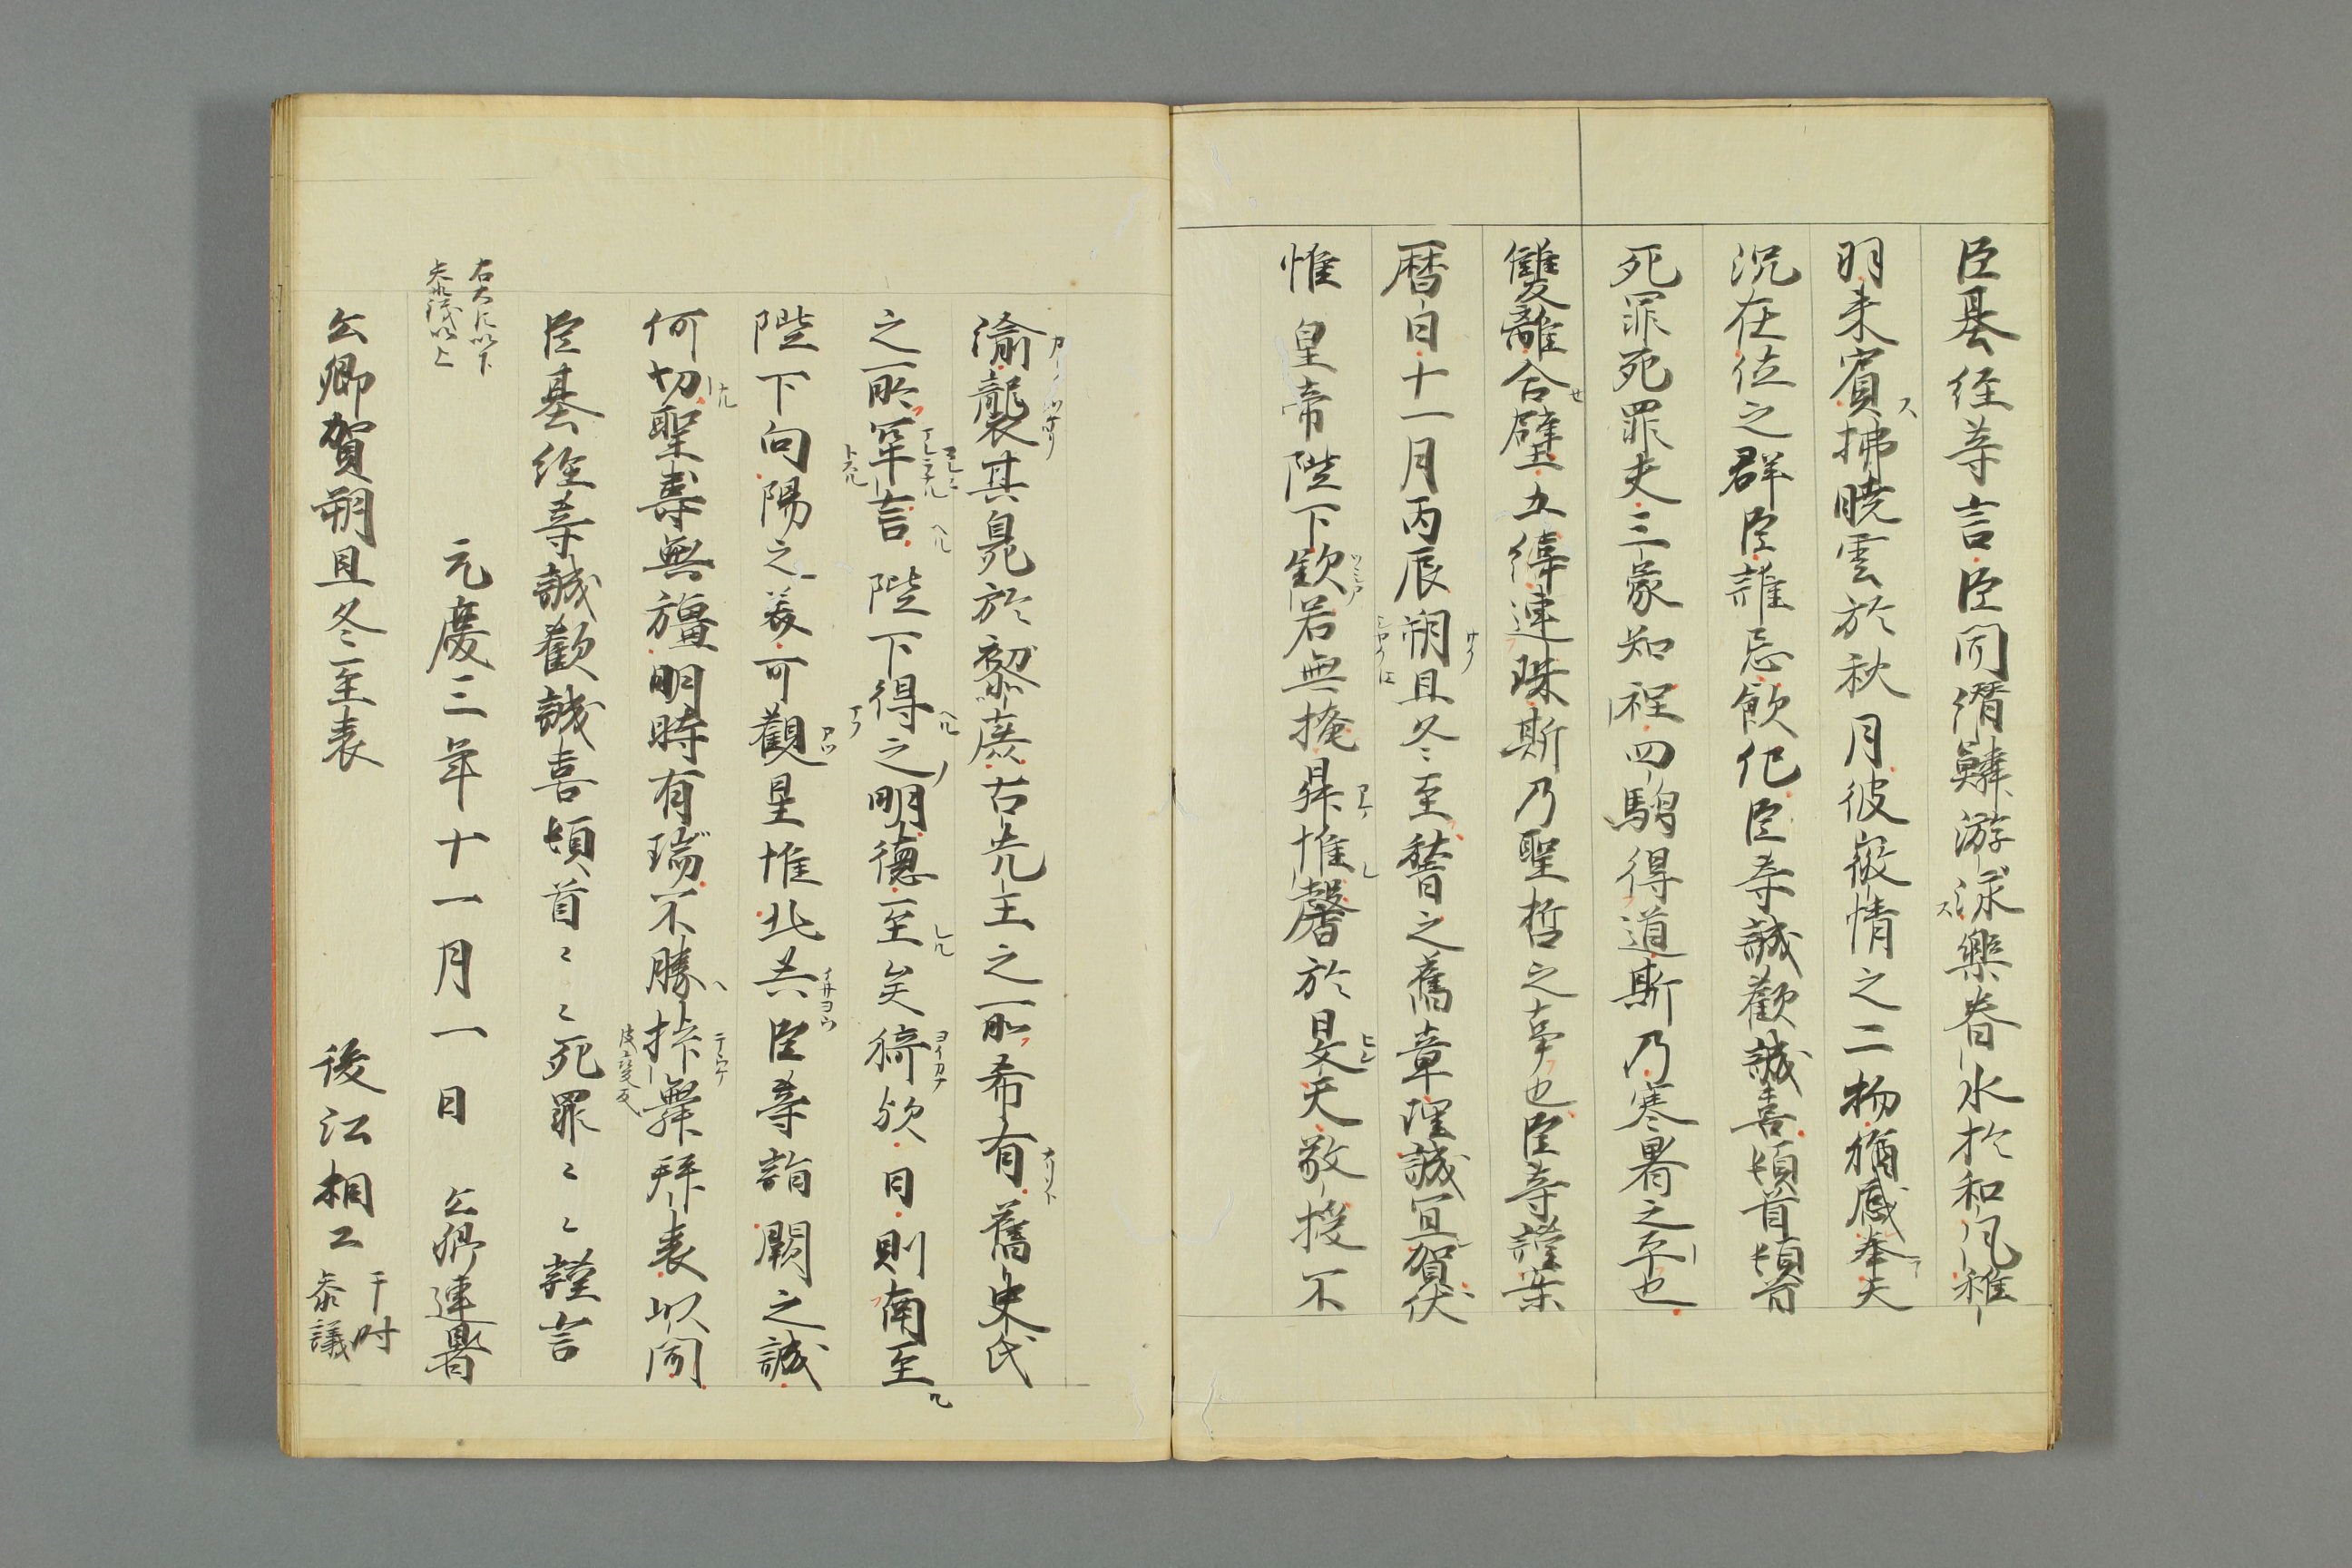 臣基経等言臣聞潛鱗游泳樂春水於和風稚
羽来賓拂暁雲於秋月彼微情之二物猶感奉天
況在位之群臣誰忘飲化臣等誠歡誠喜頓首頓首
死罪死罪夫三象知程四鶏得道斯乃寒暑之平也
雙離合璧五緯連珠斯乃聖哲之事也臣等謹案
暦日十一月丙辰朔旦冬至瞽之舊章理誠宜賀伏
惟皇帝陛下欽若無掩昇惟馨於旻天敬授不
渝襲其晁於黎庶古先主之所希有舊史氏
之所罕言陛下得之明德至矣猗欤日則南至
陛下向陽之美可觀星惟北共臣等詣闕之誠
何切聖壽無疆明時有瑞不勝抃舞拜表以聞
皮變反
臣基経等誠歡誠喜頓首〻〻死罪〻〻謹言
右大臣以下
参議以上
元慶三年十一月一日 公卿連署
公卿賀朔旦冬至表 後江相公 于时参議